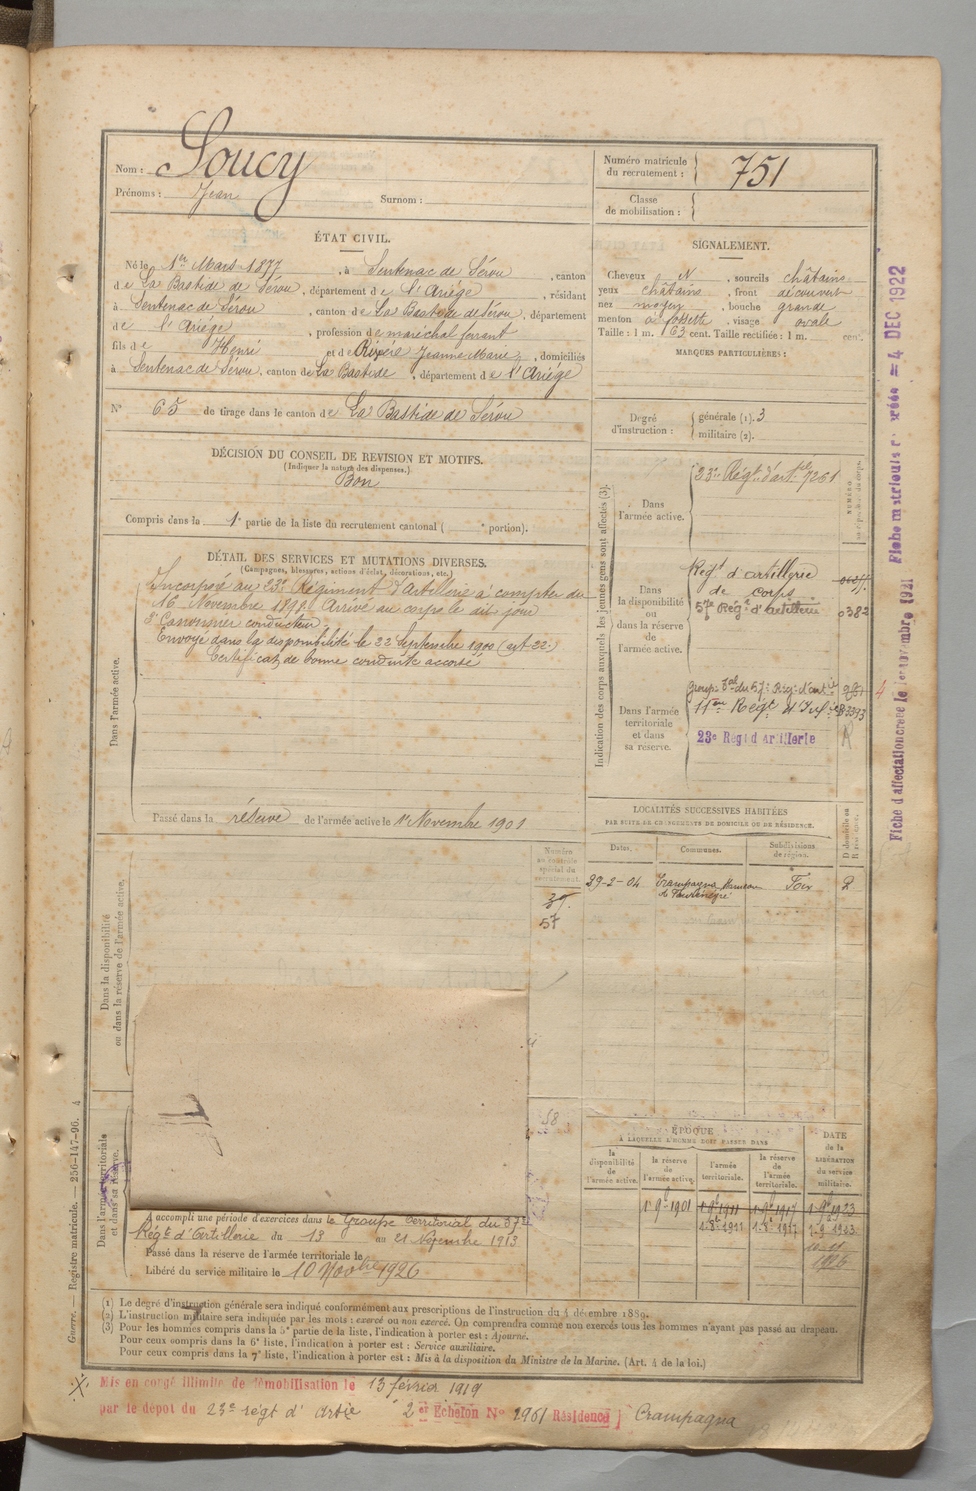 Nom : Soucy
Prénoms : Jean Surnom :
Numéro matricule du recrutement : 751
Classe de mobilisation :
ÉTAT CIVIL.
Né le 1er Mars 1877, à Sentenac de Sérou, canton
de La Bastide de Sérou, département de l'Ariège, résidant
à Sentenac de Sérou, canton de La Bastide de Sérou, département
de l'Ariège, profession de maréchal ferrant
fils de Henri et de Rivère Jeanne Marie, domiciliés
à Sentenac de Sérou, canton de La Bastide, département de l'Ariège
N° 65 de tirage dans le canton de La Bastide de Sérou
SIGNALEMENT.
Cheveux N, sourcils châtains
yeux châtains, front découvert
nez moyen, bouche grande
menton à fossette, visage ovale
Taille : 1 m. 63 cent. Taille rectifiée : 1 m. cent.
MARQUES PARTICULIÈRES :
Degré d'instruction : générale (1). 3
militaire (2).
DÉCISION DU CONSEIL DE REVISION ET MOTIFS.
(Indiquer la nature des dispenses.)
Bon
Compris dans la 1e partie de la liste du recrutement cantonal ( e portion).
DÉTAIL DES SERVICES ET MUTATIONS DIVERSES.
(Campagnes, blessures, actions d'éclat, décorations, etc.)
Dans l'armée active.
Incorporé au 23e Régiment d'artillerie à compter du
16 Novembre 1898. Arrivé au corps le dit jour
2e Canonnier conducteur
Envoyé dans la disponibilité le 22 Septembre 1900 (art. 22.)
Certificat de bonne conduite accordé
Passé dans la réserve de l'armée active le 1er Novembre 1901
Indication des corps auxquels les jeunes gens sont affectés (3).
NUMÉRO
Dans l'armée active.
23e Régt d'art. 7251
Dans la disponibilité ou dans la réserve de l'armée active.
Régt d'artillerie
de corps
57e Régt d'artillerie 0382
Dans l'armée territoriale et dans sa réserve.
Groupe tal du 57e Rég. d'artie
23e Régt d'Artillerie
LOCALITÉS SUCCESSIVES HABITÉES
PAR SUITE DE CHANGEMENTS DE DOMICILE OU DE RÉSIDENCE.
Dates. Communes. Subdivisions de région. D domicile ou R résidence.
29-2-04 Crampagna Foix R
Numéro au contrôle spécial du recrutement.
57
Dans la disponibilité ou dans la réserve de l'armée active.
Dans l'armée territoriale et dans sa réserve.
A accompli une période d'exercices dans le Groupe territorial du 57e
Régt d'Artillerie du 13 au 21 Novembre 1913
Passé dans la réserve de l'armée territoriale le
Libéré du service militaire le 10 Novbre 1926
ÉPOQUE
À LAQUELLE L'HOMME DOIT PASSER DANS
la disponibilité de l'armée active. la réserve de l'armée active. l'armée territoriale. la réserve de l'armée territoriale.
DATE de la LIBÉRATION du service militaire.
1 9e 1901 1 9e 1911 1 9e 1917 1 9e 1923
1-8e-1911 1-8e-1917 1-9-1923
1926
(1) Le degré d'instruction générale sera indiqué conformément aux prescriptions de l'instruction du 4 décembre 1889.
(2) L'instruction militaire sera indiquée par les mots : exercé ou non exercé. On comprendra comme non exercés tous les hommes n'ayant pas passé au drapeau.
(3) Pour les hommes compris dans la 5e partie de la liste, l'indication à porter est : Ajourné.
Pour ceux compris dans la 6e liste, l'indication à porter est : Service auxiliaire.
Pour ceux compris dans la 7e liste, l'indication à porter est : Mis à la disposition du Ministre de la Marine. (Art. 4 de la loi.)
Mis en congé illimité de démobilisation le 13 février 1919
par le dépot du 23e régt d'Artie 2er Echelon N° 2961 Résidence ] Crampagna
Guerre. — Registre matricule. — 256-147-96. 4
Fiche d'affectation créée le 1er novembre 1921 Fiche matricule créée 4 DEC 1922